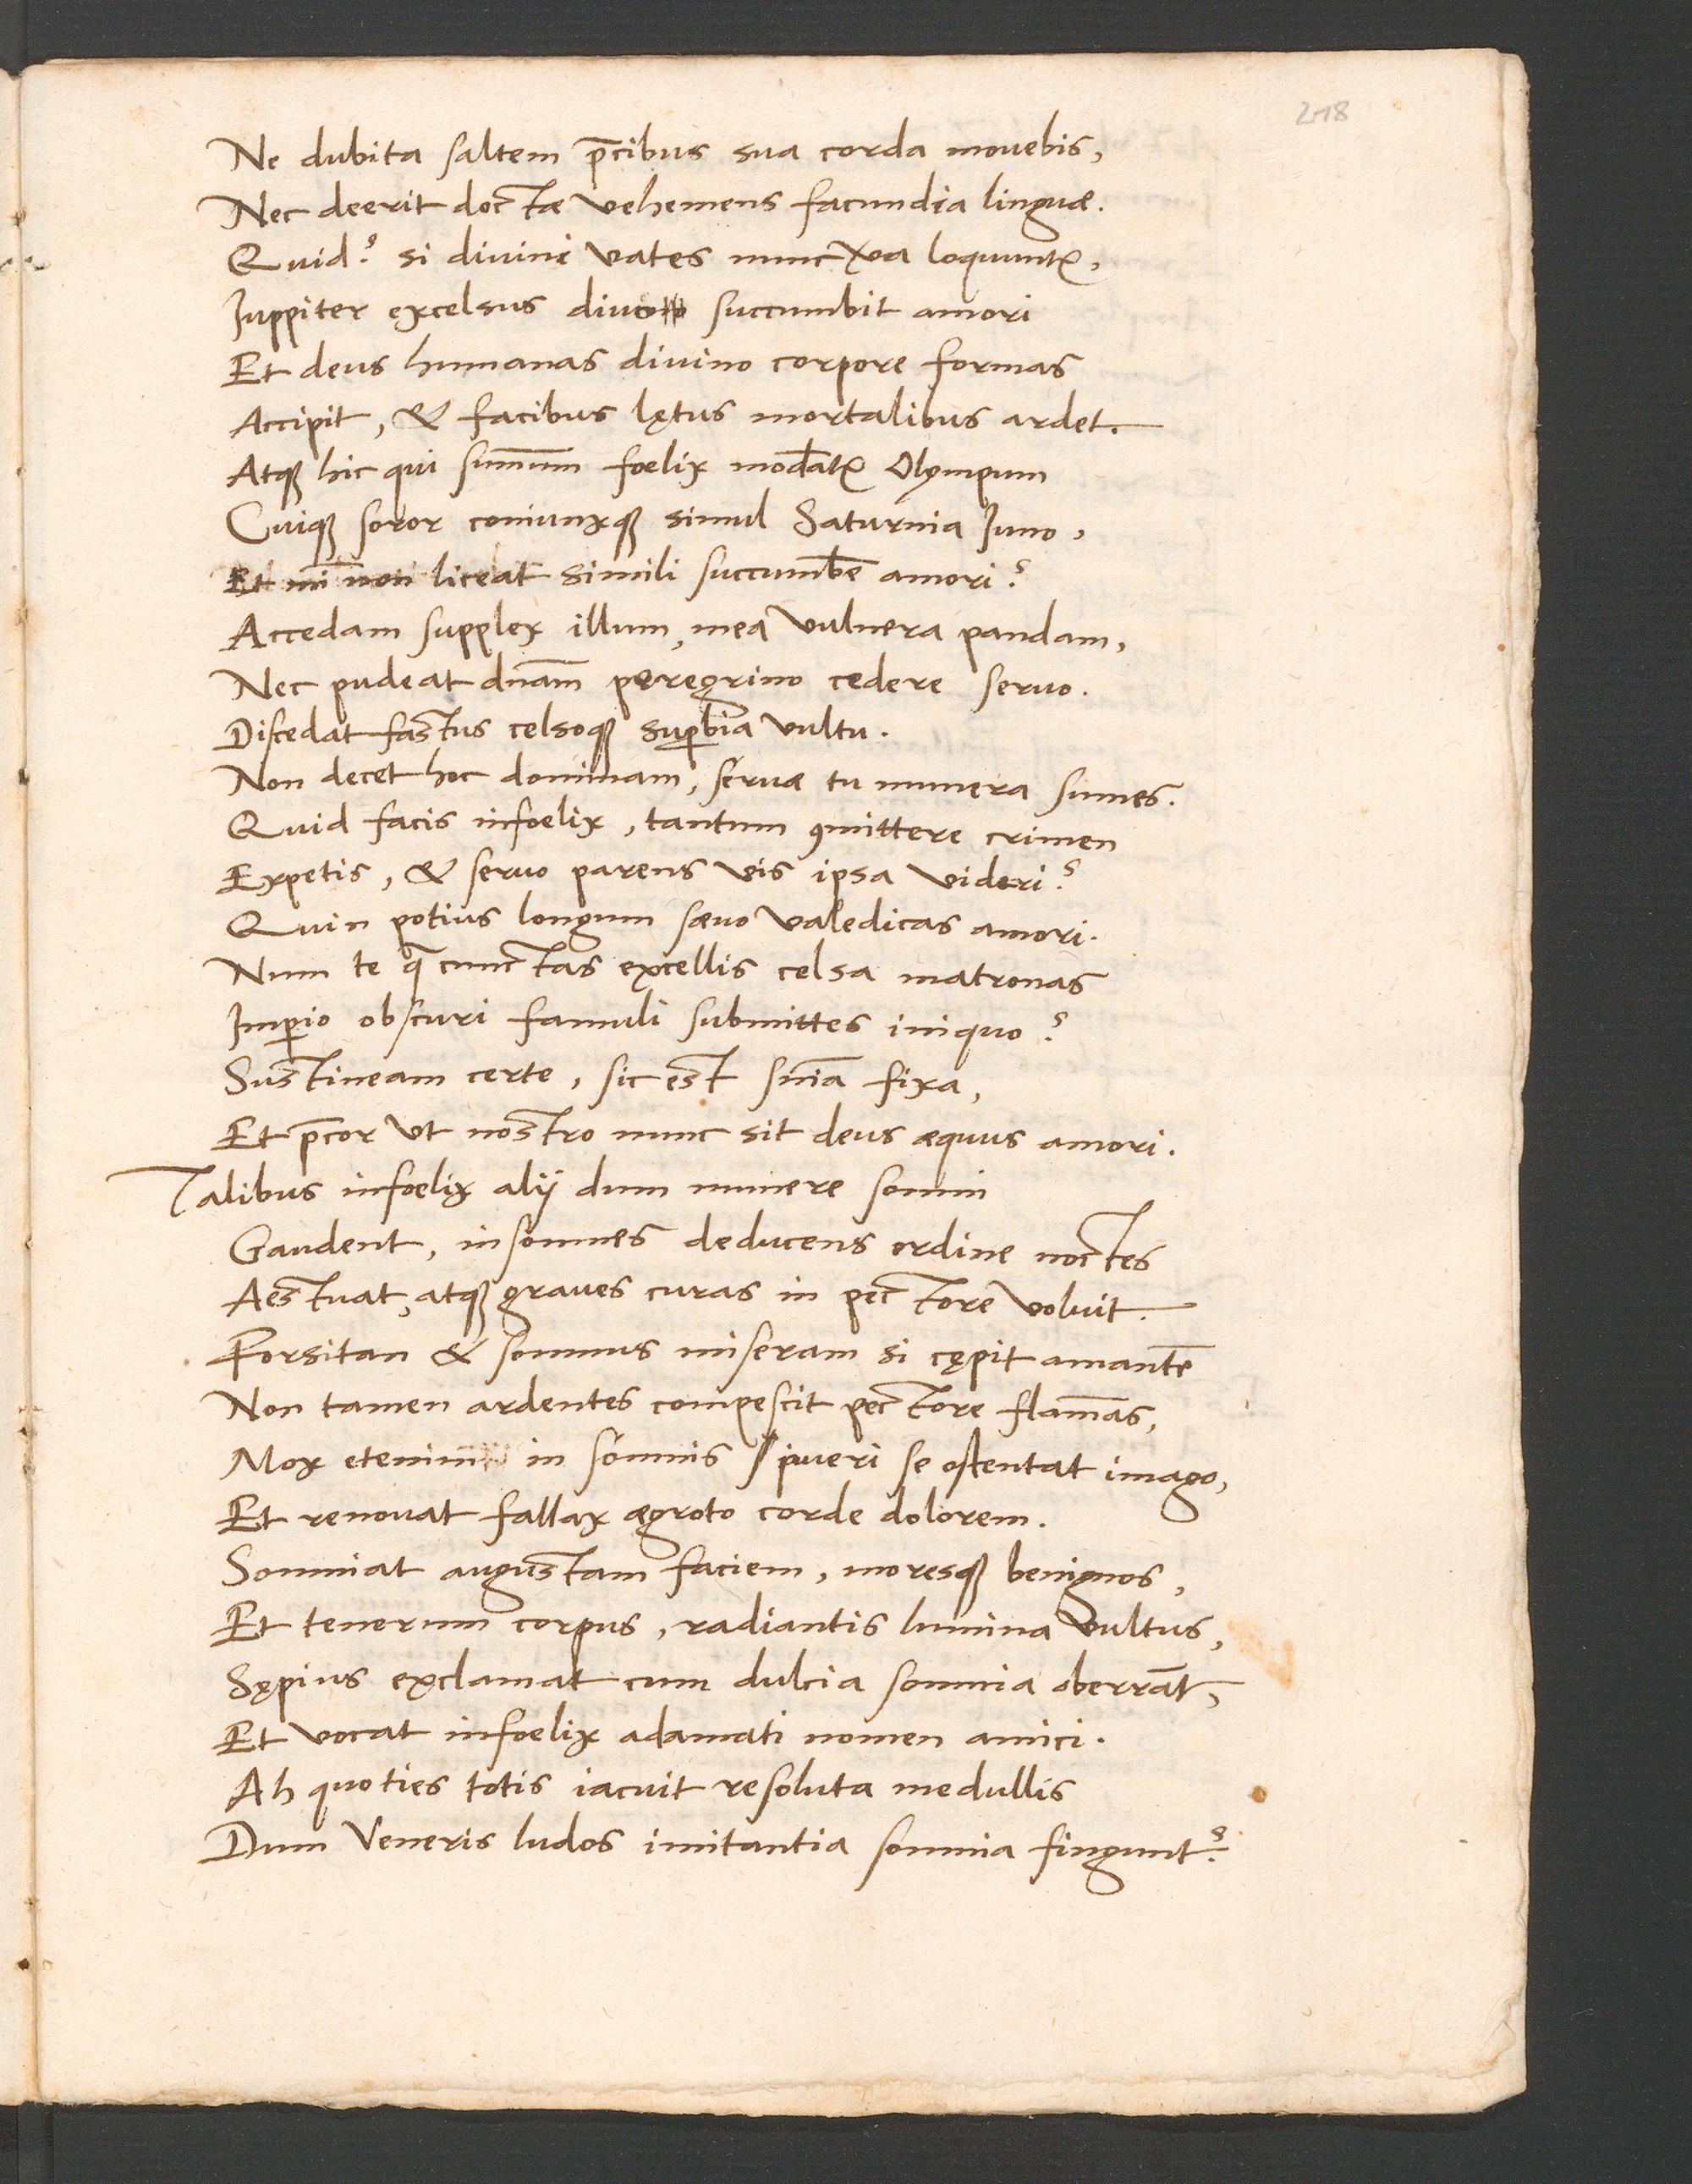 218
Ne dubita saltem p̄cibus sua corda mouebis,
Nec deerit doctæ vehemens facundia linguæ.
Quid? si diuini vates nunc loquunt᷑,
Iuppiter excelsus succumbit amori
Et deus humanas diuino corpore formas
Accipit, & facibus lętus mortalibus ardet.
Atqꝫ hic qui sum̄um foelix mod̄at᷑ Olympum
Cuiqꝫ soror coniunxqꝫ simul Saturnia Iuno,
Et mī non liceat simili succumb̄e amori?
Accedam supplex illum, mea vulnera pandam,
Nec pudeat dn̄am peregrino cedere seruo.
Discedat fastus celsoqꝫ sup̱bia vultu.
Non decet hoc dominam, seruæ tu munera sumes.
Quid facis infoelix, tantum ꝯmittere crimen
Expetis, & seruo parens vis ipsa videri?
Quin potius longum sæuo valedicas amori.
Num te q̄ cunctas excellis celsa matronas
Imp̱io obscuri famuli submittes iniquo?
Sustineam certe, sic est sn̄ia fixa,
Et p̄cor vt nostro nunc sit deus æquus amori.
Talibus infoelix alij dum munere somni
Gaudent, insomnes deducens ordine noctes
Aestuat, atqꝫ graues curas in pectore voluit.
Forsitan & somnus miseram si cępit amantē
Non tamen ardentes compescit pectore flam̄as,
Mox etenim in somnis pueri se ostentat imago,
Et renouat fallax ægroto corde dolorem.
Somniat augustam faciem, moresqꝫ benignos,
Et tenerum corpus, radiantis lumina vultus,
Sępius exclamat cum dulcia somnia oberrāt,
Et vocat infoelix adamati nomen amici.
Ah quoties totis iacuit resoluta medullis
Dum Veneris ludos imitantia somnia fingunt?